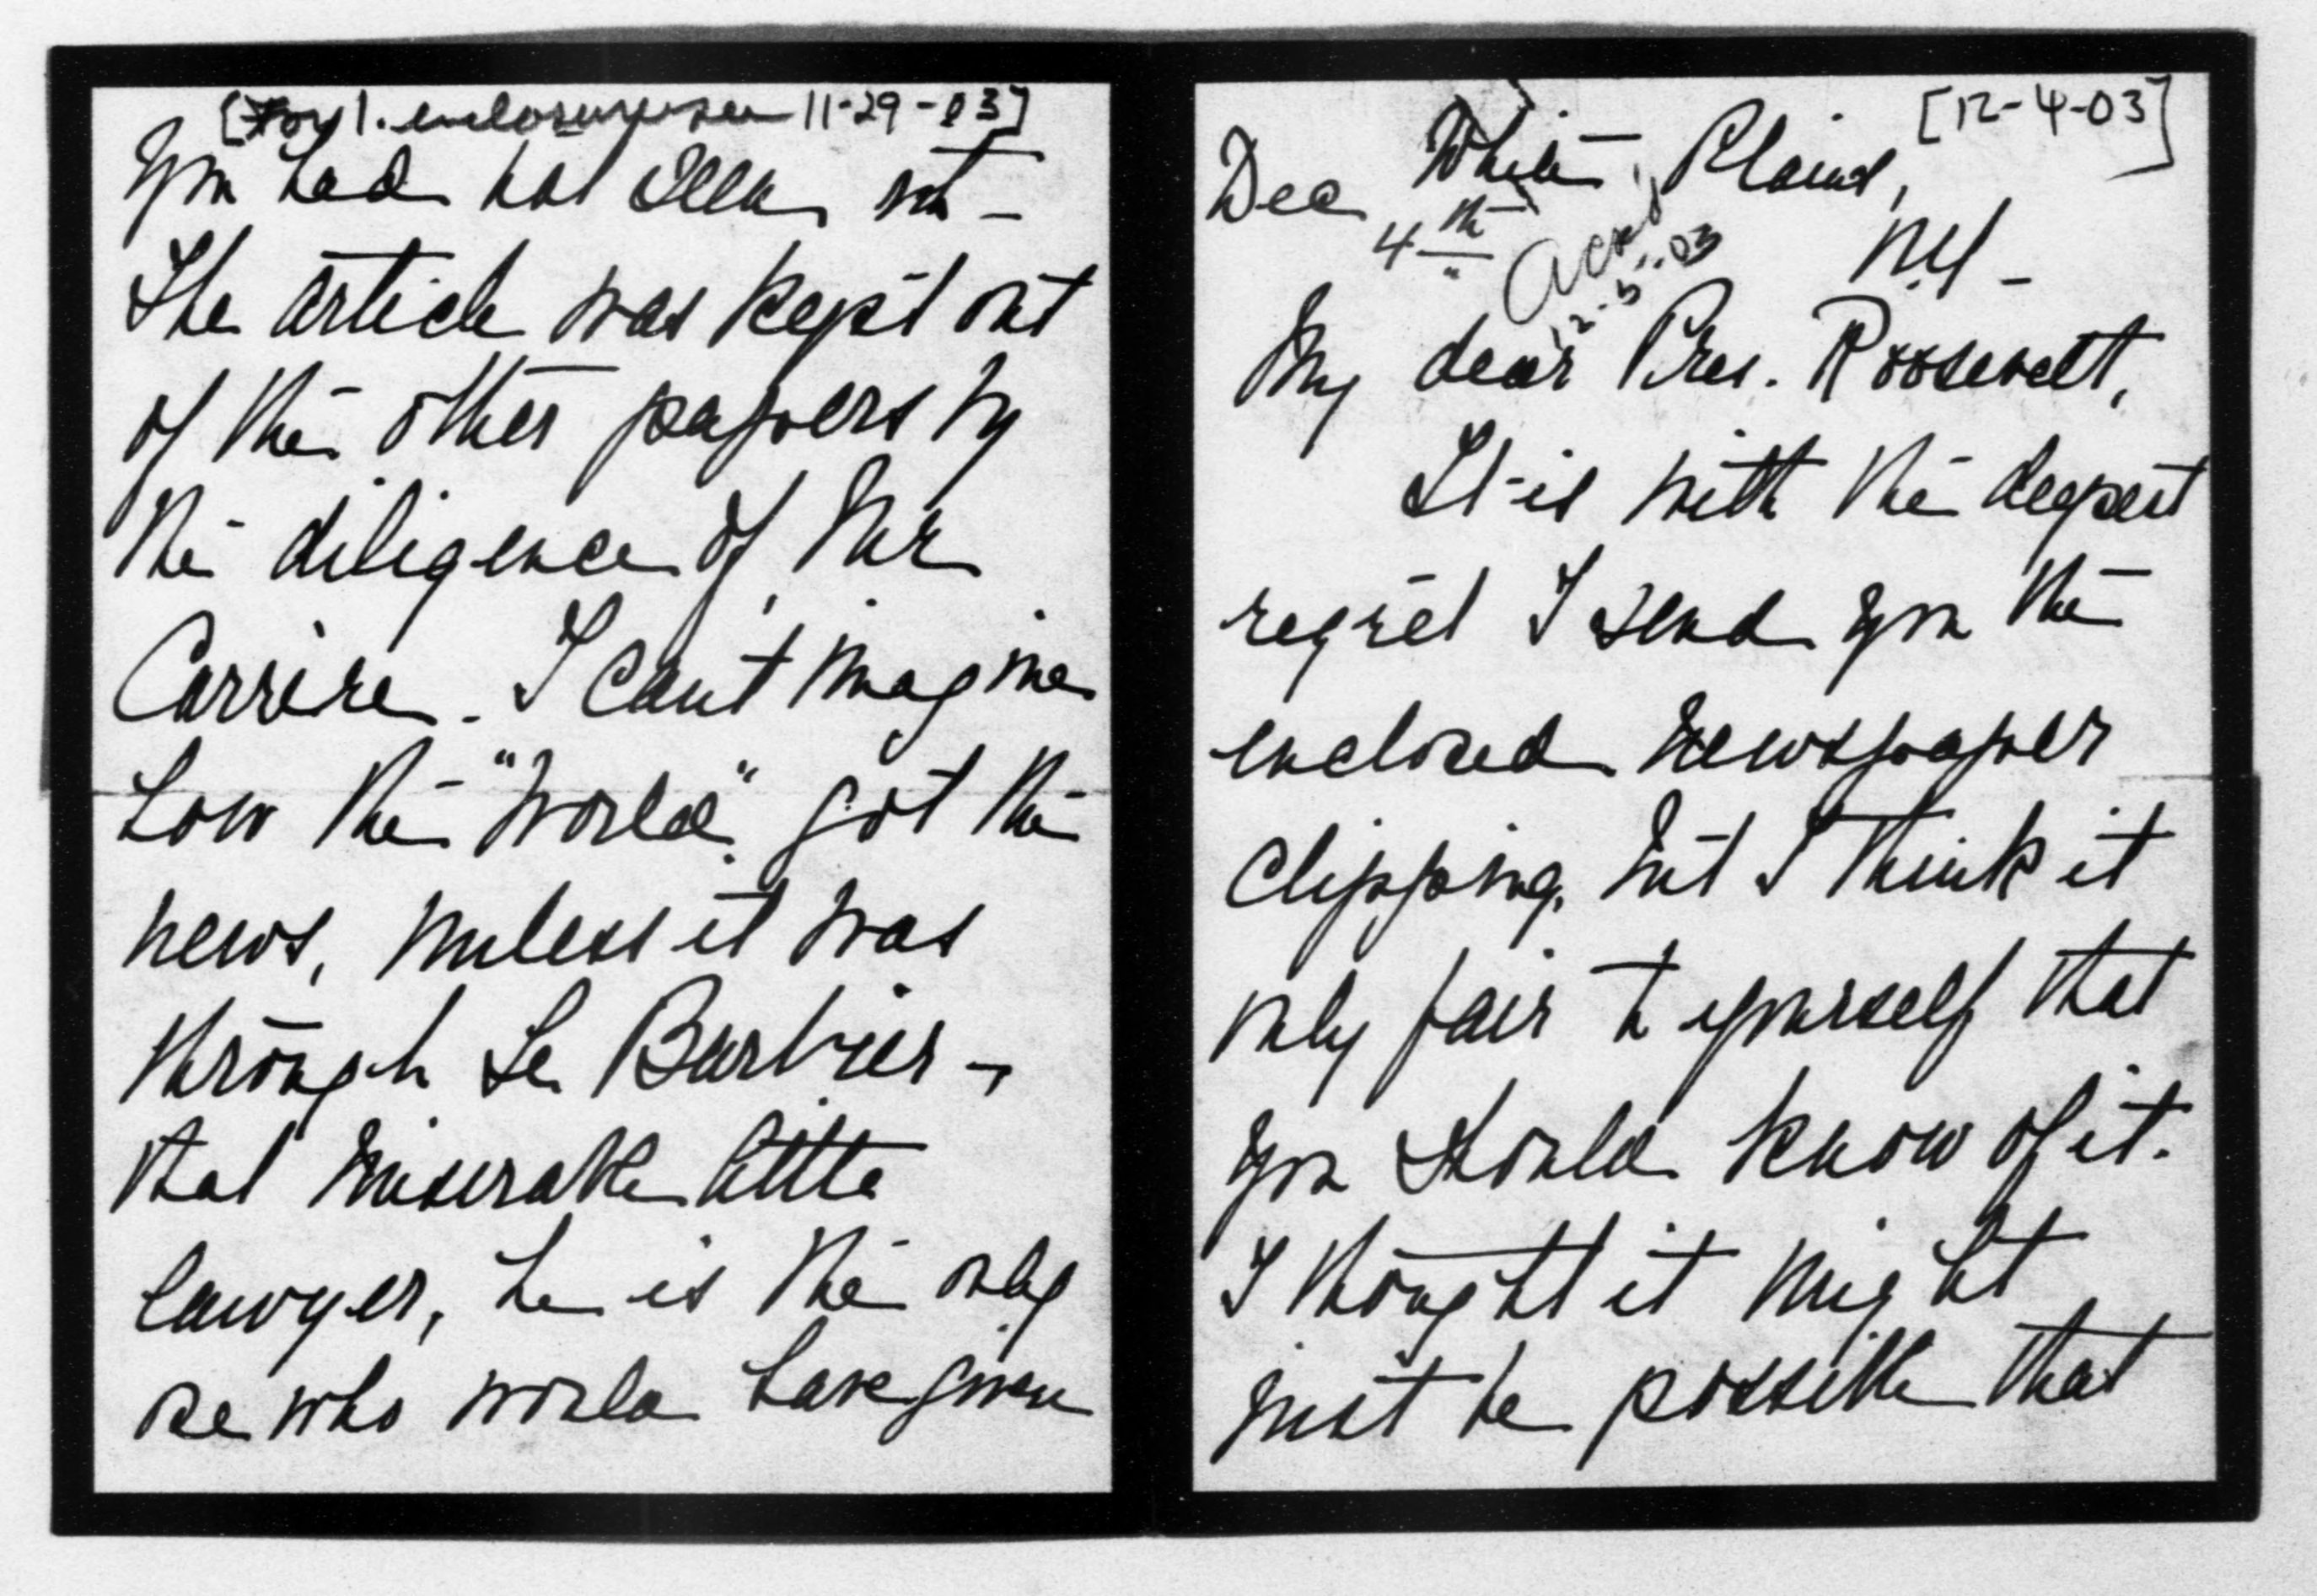 [For 1. enclosure see 11-29-03]
you had not seen it -
The article was kept out
of the other papers by
the diligence of Mr
Carrère. I can't imagine
how the "World" got the
news, unless it was
through Le Barbier -,
that miserable little
lawyer, he is the only
one who would have given
[12-4-03]
White Plains,
Dec 4th
N.Y -
Ackd
12.5..03
My dear Pres. Roosevelt,
It is with the deepest
regret I send you the
enclosed newspaper
clipping, but I think it
only fair to yourself that
you should know of it.
I thought it might
just be possible that